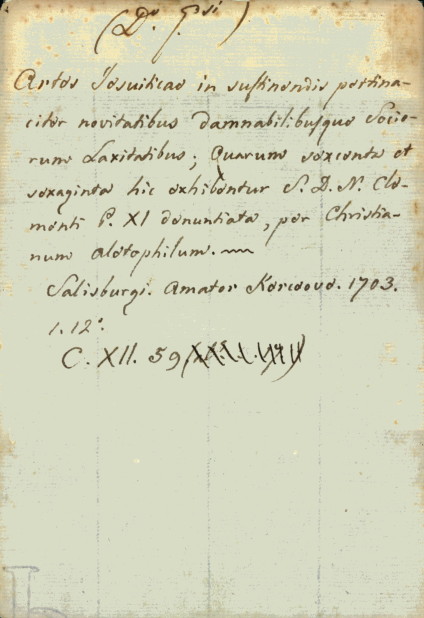 (D. G.si)
Artes Jesuiticae in sustinendis pertina-
citer novitatibus damnabilibusque Socio-
rum Laxitatibus; Quarum sexcenta et
sexaginta hic exhibentur S. D. N. Cle-
menti P. XI denuntiata, per Christia-
num Aletophilum.
Salisburgi. Amator Kercoovo. 1703.
1. 12°.
C. XII. 59